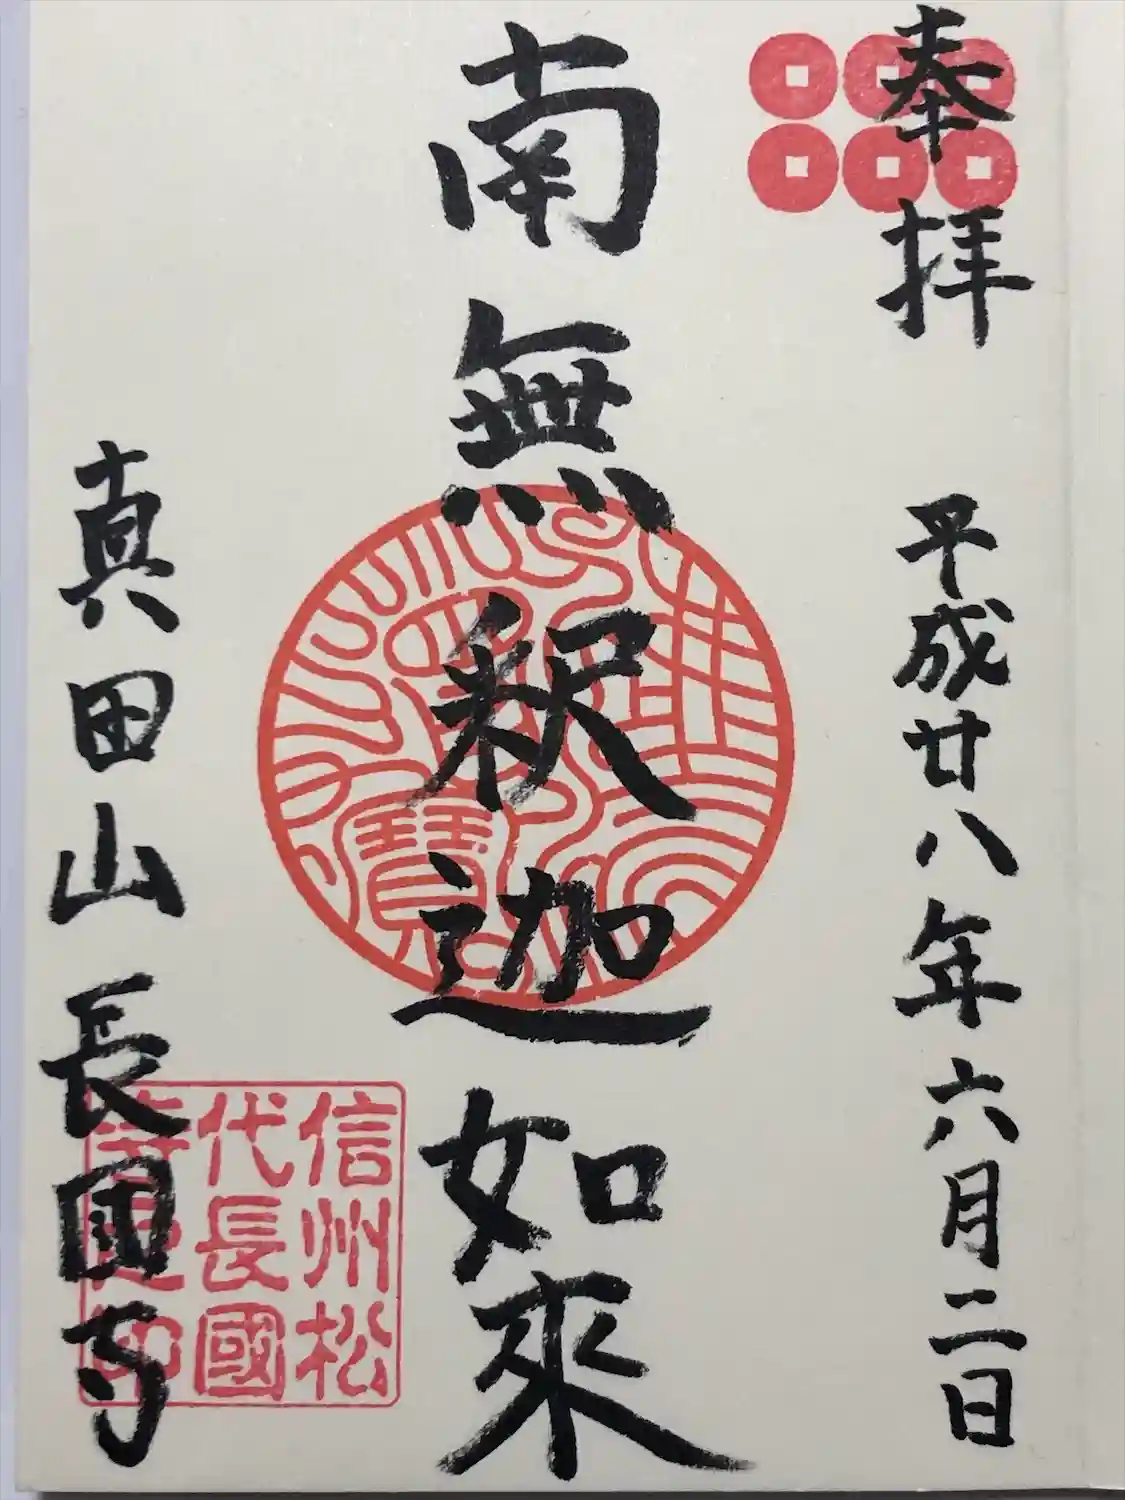 奉拝 平成廿八年六月二日
南無釈迦如來
真田山長國寺
信州松
代長國